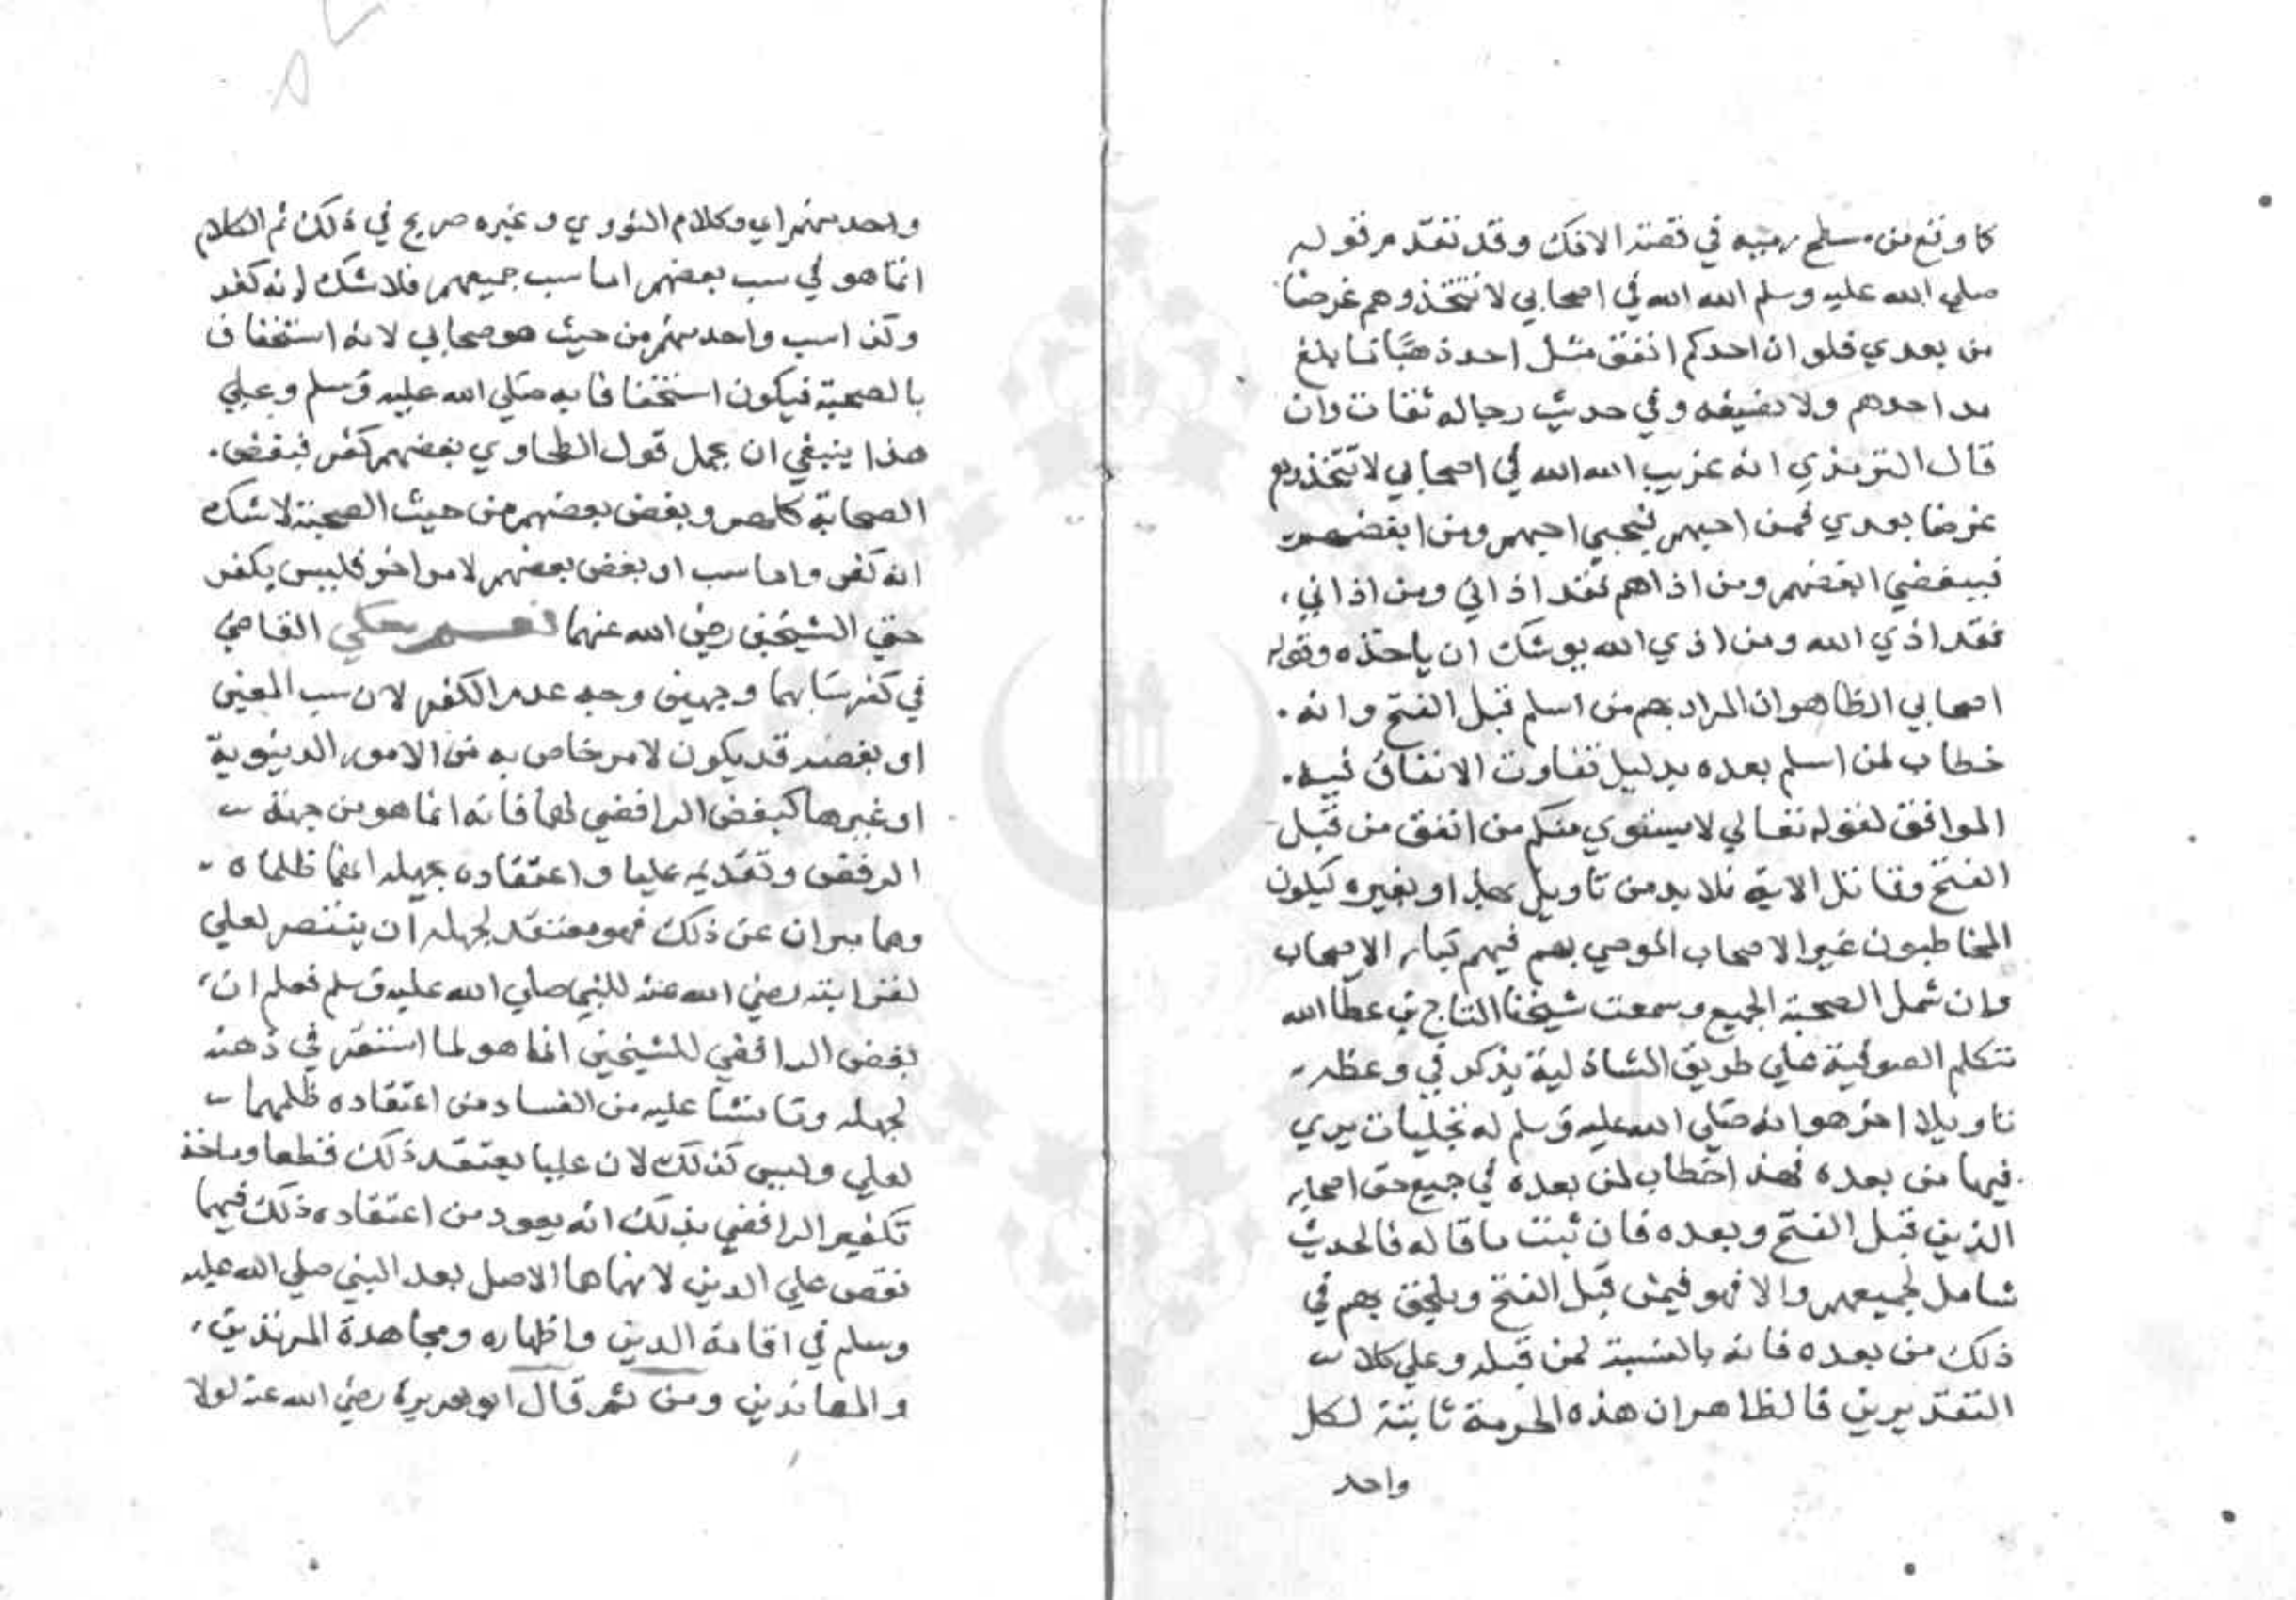 كما وقع من مسطح رميه في قصة الافك وقد تقدم قوله
صلي الله عليه وسلم الله الله في اصحابي لا تتخذوهم غرضا
من بعدي فلو ان احدكم انفق مثل احد ذهبا ما بلغ
مد احدهم ولا نصيفه وفي حديث رجاله ثقات وان
قال الترمذي انه غريب الله الله في اصحابي لا تتخذوهم
غرضا بعدي فمن احبهم فبحبي احبهم ومن ابغضهم
فببغضي ابغضهم ومن اذاهم فقد اذاني ومن اذاني
فقد اذي الله ومن اذي الله يوشك ان ياخذه وقوله
اصحابي الظاهر ان المراد بهم من اسلم قبل الفتح وانه
خطاب لمن اسلم بعده بدليل تفاوت الانفاق فيه
الموافق لقوله تعالي لا يستوي منكم من انفق من قبل
الفتح وقاتل الاية فلا بد من تاويل بهذا او بغيره ليكون
المخاطبون غير الاصحاب الموصي بهم فيهم كبار الاصحاب
وان شمل الصحبة الجميع وسمعت شيخنا التاج بن عطا الله
متكلم الصوفية علي طريق الشاذلية يذكر في وعظه
تاويلا اخر هو انه صلي الله عليه وسلم له تجليات يري
فيها من بعده فهذا خطاب لمن بعده في جميع حق اصحابه
الذين قبل الفتح وبعده فان ثبت ما قاله فالحديث
شامل لجميعهم والا فهو فيمن قبل الفتح ويلحق بهم في
ذلك من بعده فانه بالنسبة لمن قبله وعلي كلا
التقديرين فالظاهر ان هذه الحرمة ثابتة لكل
واحد
واحد منهم اي وكلام النووي وغيره صريح في ذلك ثم الكلام
انما هو في سب بعضهم اما سب جميعهم فلا شك انه كفر
وكذا سب واحد منهم من حيث هو صحابي لانه استخفاف
بالصحبة فيكون استخفافا به صلي الله عليه وسلم وعلي
هذا ينبغي ان يحمل قول الطحاوي بغضهم كفر فبغض
الصحابة كلهم وبغض بعضهم من حيث الصحبة لا شك
انه كفر واما سب او بغض بعضهم لامر اخر فليس بكفر
حتي الشيخين رضي الله عنهما نعم حكي القاضي
في كفر سابهما وجهين وجه عدم الكفر لان سب المعين
او بغضه قد يكون لامر خاص به من الامور الدنيوية
او غيرها كبغض الرافضي لهما فانه انما هو من جهة
الرفض وتقديمه عليا واعتقاده بجهله انهما ظلماه
وهما مبران عن ذلك فهو معتقد لجهله ان ينتصر لعلي
لقرابته رضي الله عنه للنبي صلي الله عليه وسلم فعلم ان
بغض الرافضي للشيخين انما هو لما استقر في ذهنه
لجهله وما نشا عليه من الفساد من اعتقاده ظلمهما
لعلي وليس كذلك لان عليا يعتقد ذلك قطعا وماخذ
تكفير الرافضي بذلك انه يعود من اعتقاده ذلك فيهما
نقص علي الدين لانهما هما الاصل بعد النبي صلي الله عليه
وسلم في اقامة الدين واظهاره ومجاهدة المرتدين
والمعاندين ومن ثم قال ابو هريرة رضي الله عنه لولا